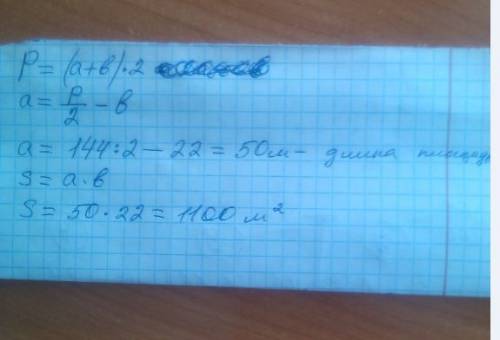 P = (a+b)·2
a = P/2 − b
a = 144:2 − 22 = 50м − длина
S = a·b
S = 50·22 = 1100 м²